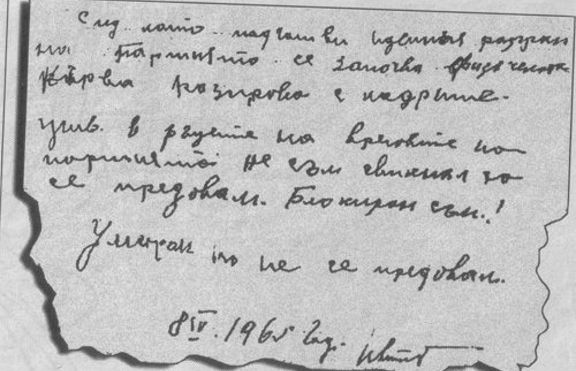 След като идейния разгром
на партията се започва физическа
кървва разправа с кадрите.
Жив. в ръцете на враговете на
партията не съм свикнал да
се предавам. Блокиран съм.!
Умирам но не се предавам.
8 IV. 1965 год.